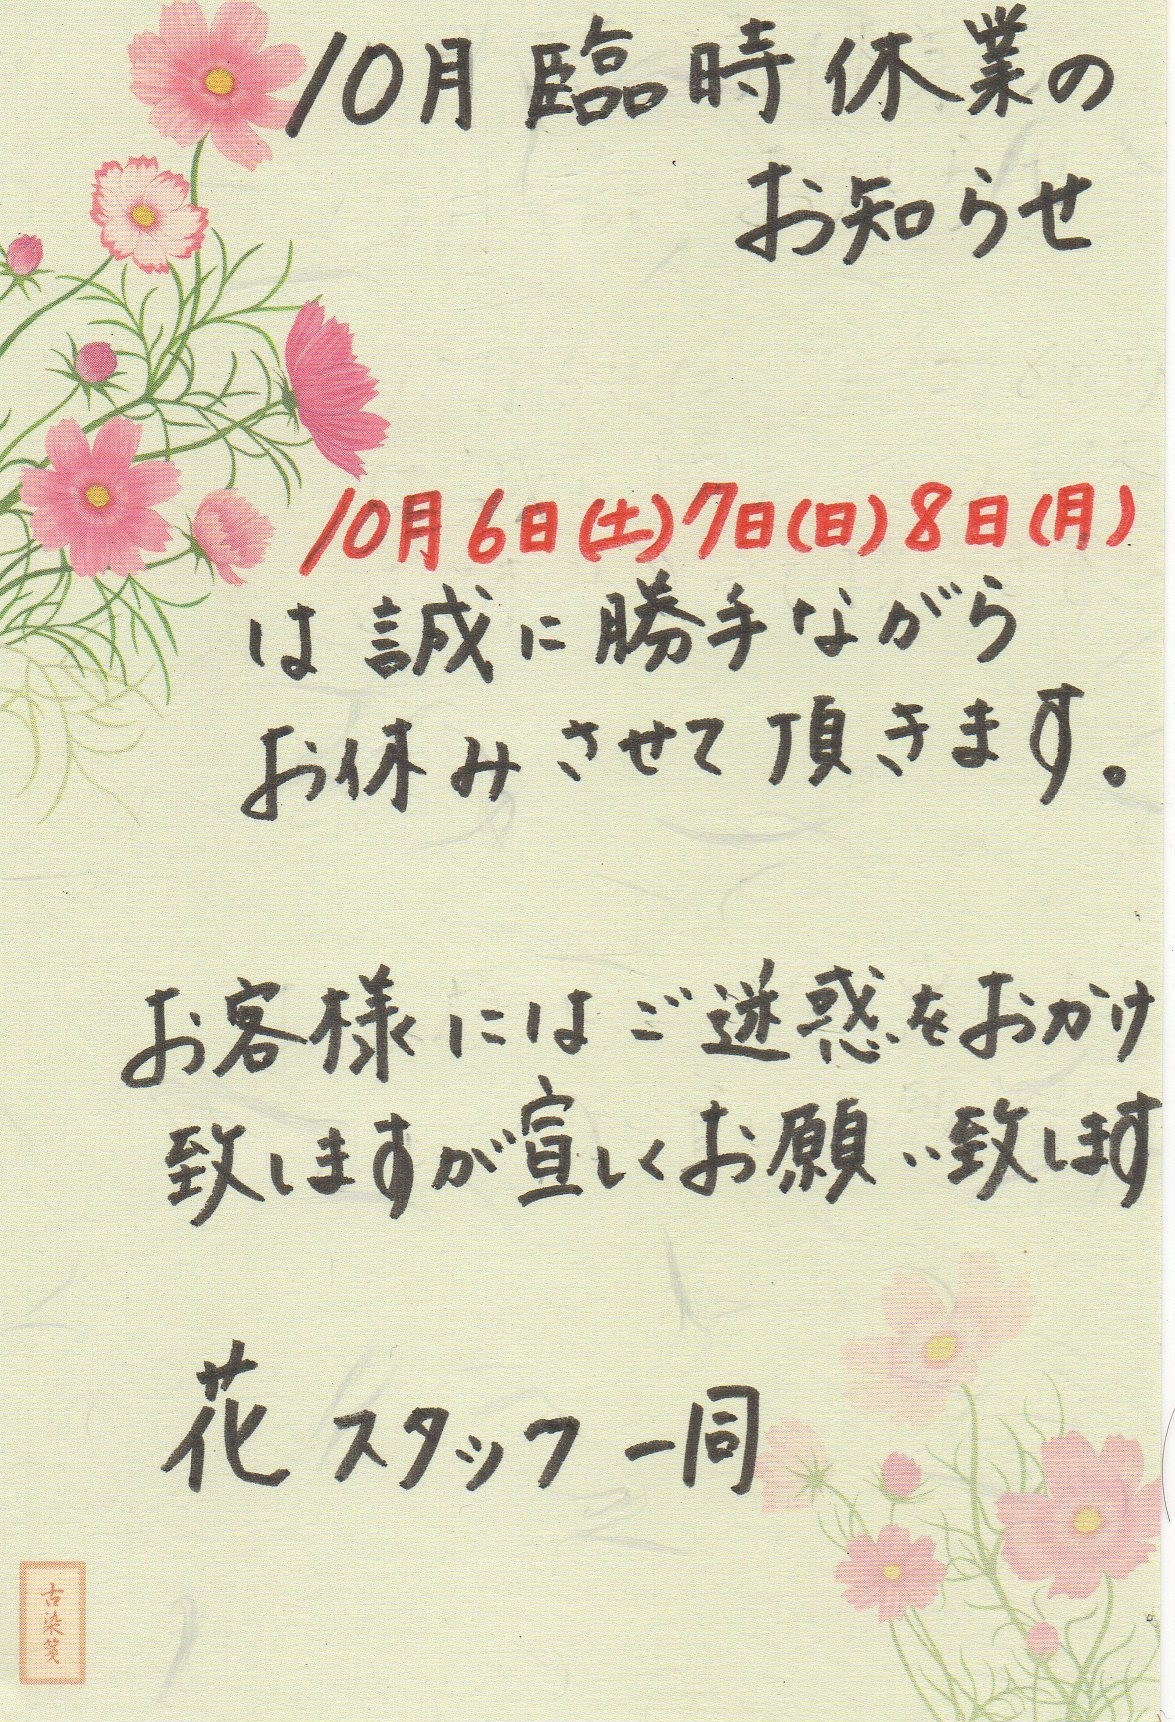 10月臨時休業の
お知らせ
10月6日(土)7日(日)8日(月)
は誠に勝手ながら
お休みさせて頂きます。
お客様にはご迷惑をおかけ
致しますが宜しくお願い致します
花スタッフ一同
古染箋